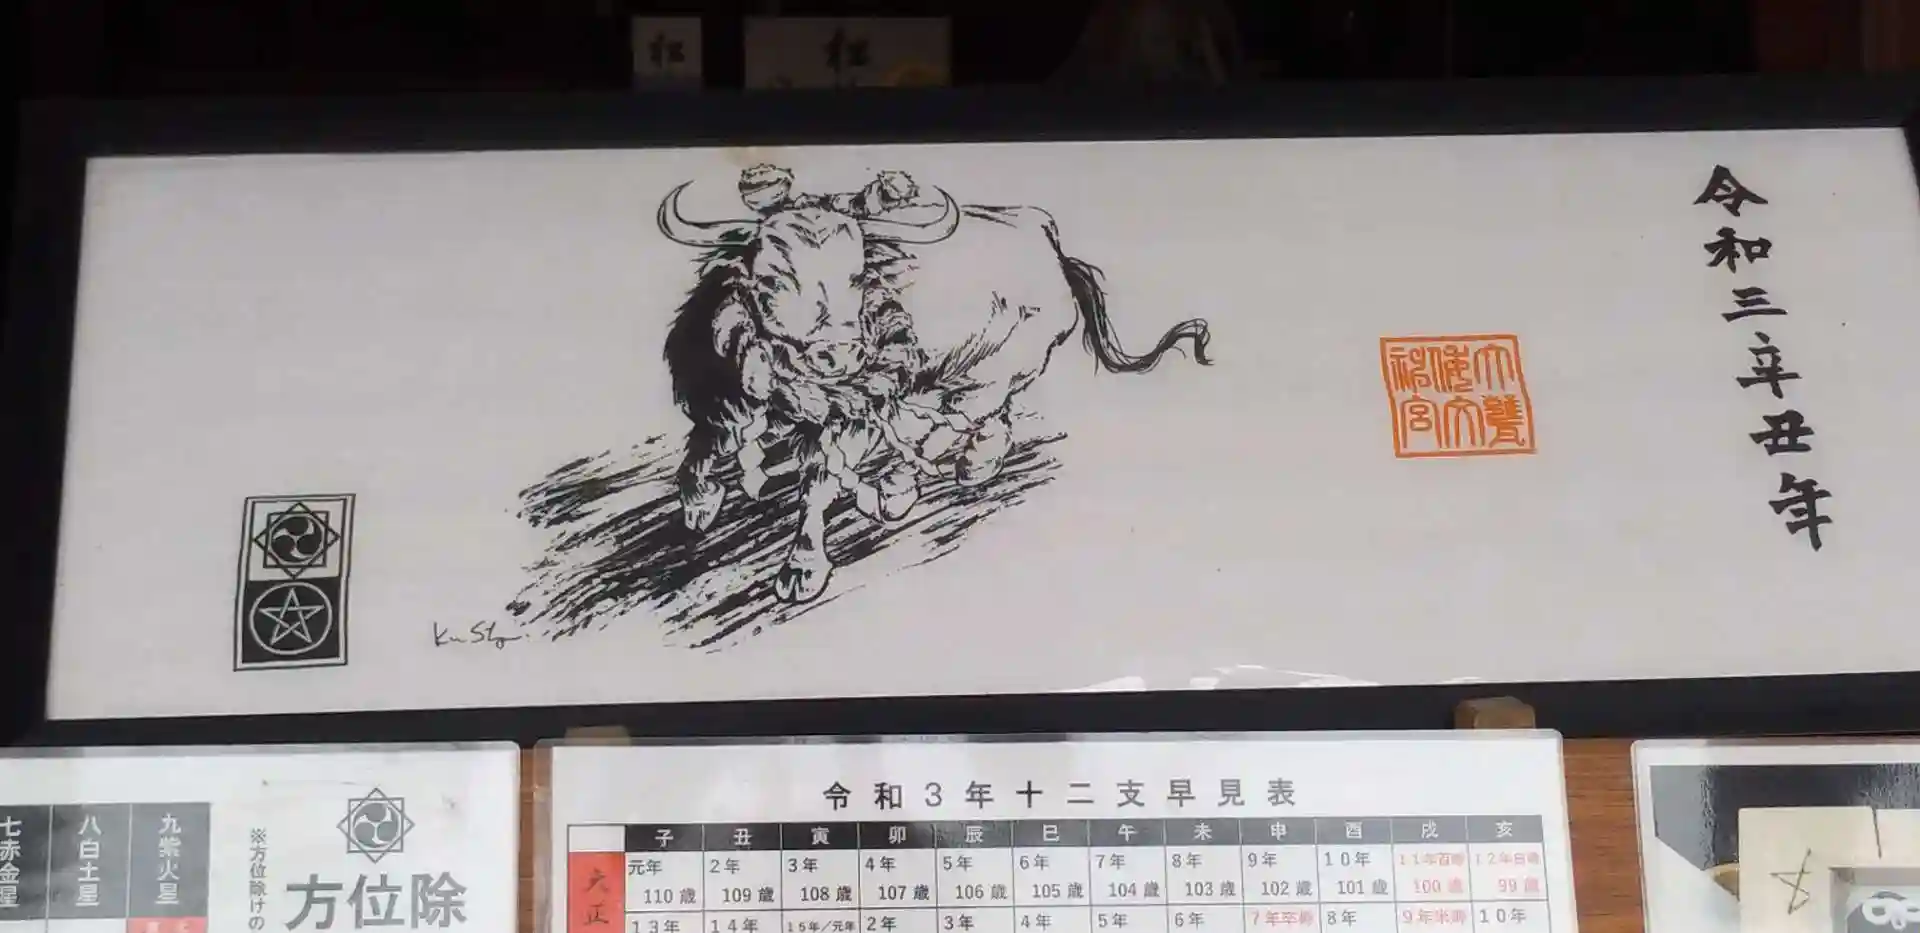 令和三辛丑年
七赤金星
八白土星
九紫火星
※方位除けの
方位除
令和3年十二支早見表
子 丑 寅 卯 辰 巳 午 未 申 酉 戌 亥
大正
元年 2年 3年 4年 5年 6年 7年 8年 9年 10年 11年百寿 12年白寿
110歳 109歳 108歳 107歳 106歳 105歳 104歳 103歳 102歳 101歳 100歳 99歳
13年 14年 15年/元年 2年 3年 4年 5年 6年 7年卒寿 8年 9年米寿 10年